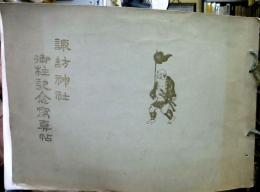 諏訪神社
御柱記念寫真帖